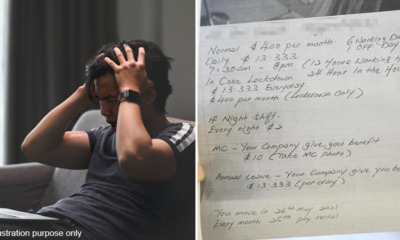 ustration purpose only
Normal $400 per month 6 Working Da
Daily $13.333 1 OFF Day
7:30am - 8pm (12 Hours Working
In Case Lockdown 24 Hour In the Hou
$13.333 Everyday
$400 per month (Lockdown Only)
If Night Shift.
Every night $2
MC - Your Company give you benefit
$10 (Take MC photo)
Annual Leave - Your Company give you be
$13.333 (per day)
You move in 26th May 2021
Every month 26th pay rental